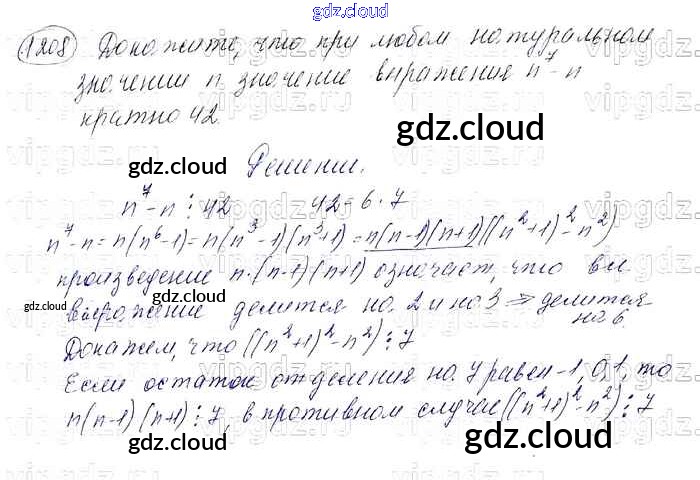 gdz.cloud
1208 Докажите, что при любом натуральном
значении n значение выражения n⁷-n
кратно 42
gdz.cloud
gdz.cloud Решение.
n⁷-n ⋮ 42 42=6·7
n⁷-n=n(n⁶-1)=n(n³-1)(n³+1)=n(n-1)(n+1)((n²+1)²-n²)
произведение n·(n-1)(n+1) означает, что
gdz.cloud выражение делится на 2 и на 3 ⇒ делится
на 6
Докажем, что ((n²+1)²-n²) ⋮ 7
Если остаток от деления на 7 равен -1, 0, 1, то
n(n-1)(n+1) ⋮ 7, в противном случае ((n²+1)²-n²) ⋮ 7
gdz.cloud gdz.cloud